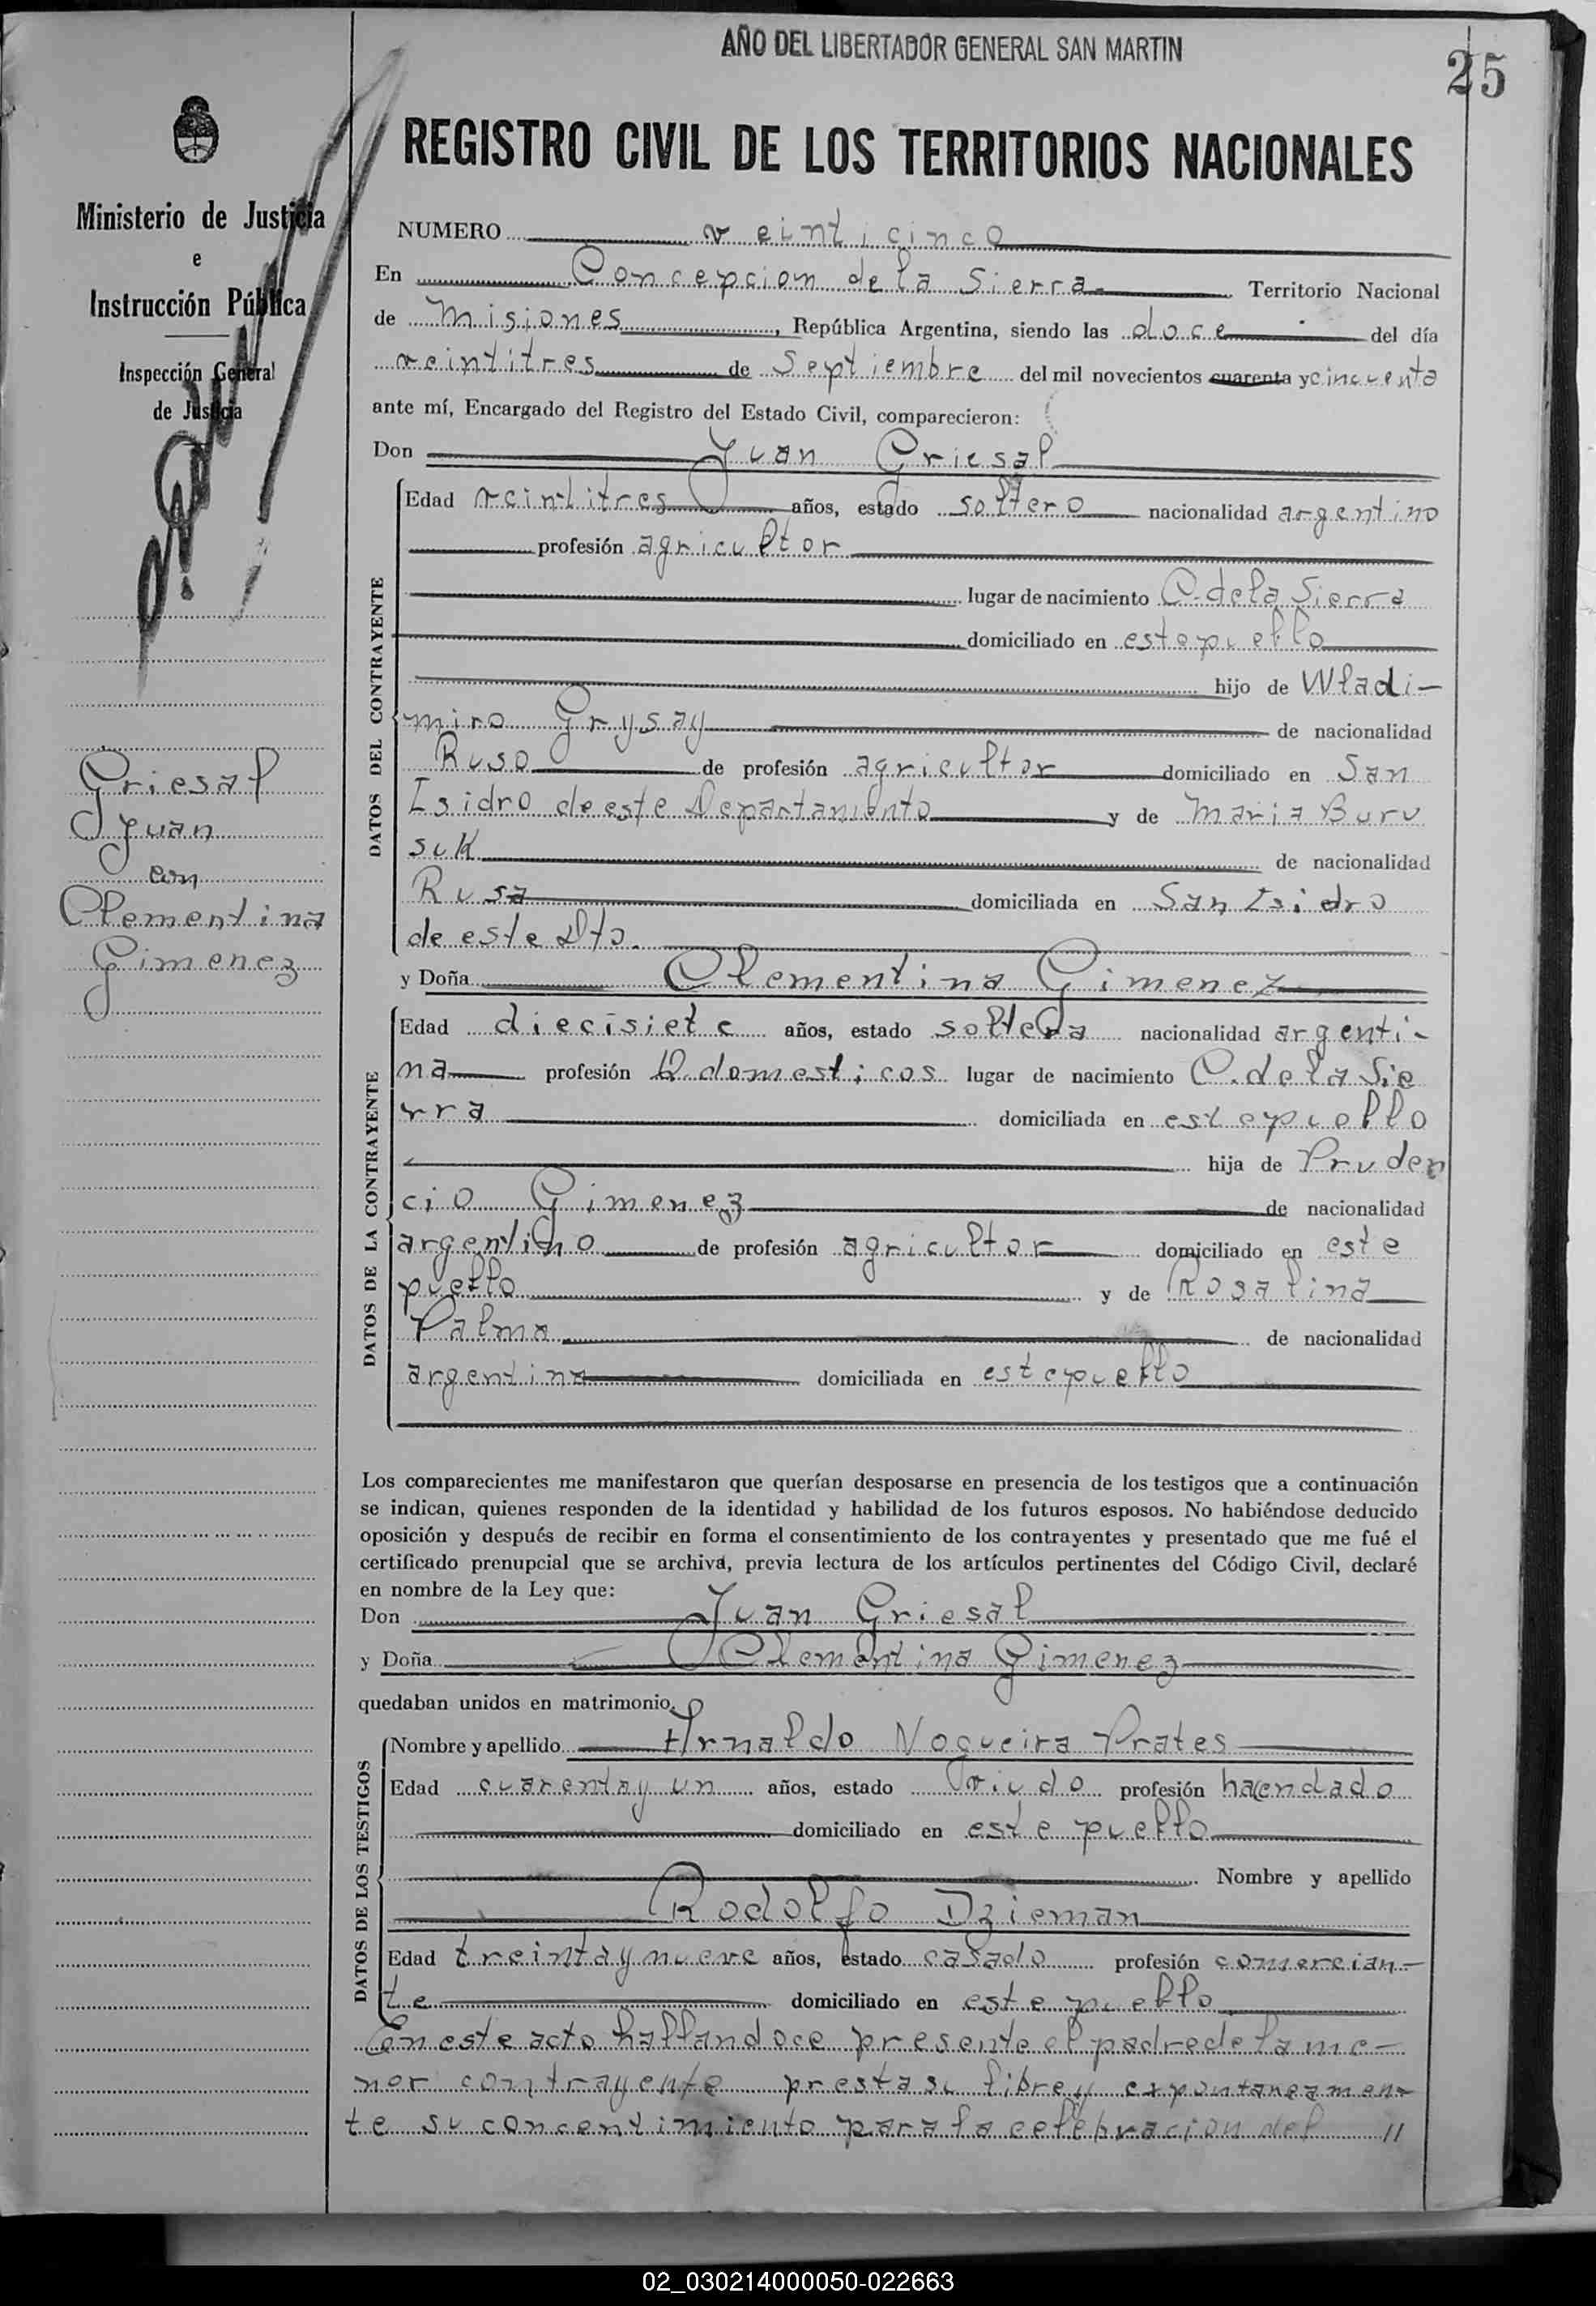 AÑO DEL LIBERTADOR GENERAL SAN MARTIN
25
Ministerio de Justicia
e
Instrucción Pública
Inspección General
de Justicia
Griesal
Juan
con
Clementina
Gimenez
REGISTRO CIVIL DE LOS TERRITORIOS NACIONALES
NUMERO veinticinco
En Concepcion de la Sierra Territorio Nacional
de Misiones, República Argentina, siendo las doce del día
veintitres de Septiembre del mil novecientos cuarenta y cincuenta
ante mí, Encargado del Registro del Estado Civil, comparecieron:
Don Juan Griesal
DATOS DEL CONTRAYENTE
Edad veintitres años, estado soltero nacionalidad argentino
profesión agricultor
lugar de nacimiento C. de la Sierra
domiciliado en este pueblo
hijo de Wladi-
miro Grysay de nacionalidad
Ruso de profesión agricultor domiciliado en San
Isidro de este Departamento y de Maria Buru
suk de nacionalidad
Rusa domiciliada en San Isidro
de este Dto.
y Doña Clementina Gimenez
DATOS DE LA CONTRAYENTE
Edad diecisiete años, estado soltera nacionalidad argenti-
na profesión Q. domesticos lugar de nacimiento C. de la Sie
rra domiciliada en este pueblo
hija de Pruden
cio Gimenez de nacionalidad
argentino de profesión agricultor domiciliado en este
pueblo y de Rosalina
Palma de nacionalidad
argentina domiciliada en este pueblo
Los comparecientes me manifestaron que querían desposarse en presencia de los testigos que a continuación
se indican, quienes responden de la identidad y habilidad de los futuros esposos. No habiéndose deducido
oposición y después de recibir en forma el consentimiento de los contrayentes y presentado que me fué el
certificado prenupcial que se archiva, previa lectura de los artículos pertinentes del Código Civil, declaré
en nombre de la Ley que:
Don Juan Griesal
y Doña Clementina Gimenez
quedaban unidos en matrimonio.
DATOS DE LOS TESTIGOS
Nombre y apellido Arnaldo Nogueira Prates
Edad cuarenta y un años, estado Viudo profesión hacendado
domiciliado en este pueblo
Nombre y apellido
Rodolfo Dzieman
Edad treinta y nueve años, estado casado profesión comercian-
te domiciliado en este pueblo
En este acto hallandoce presente el padre de la me-
nor contrayente presta su libre y expontaneamen-
te su concentimiento para la celebracion del //
02_030214000050-022663